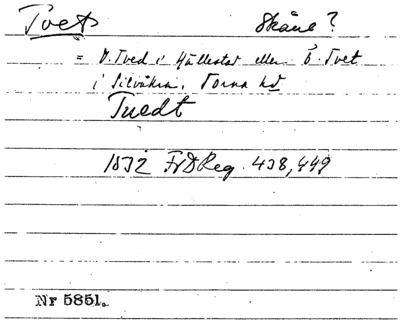 Tvet Skåne?
= V. Tved i Hällestad eller Ö. Tvet
i Silvåkra, Torna hd
Tuedt
1532 FrDReg. 438, 449
Nr 5851.